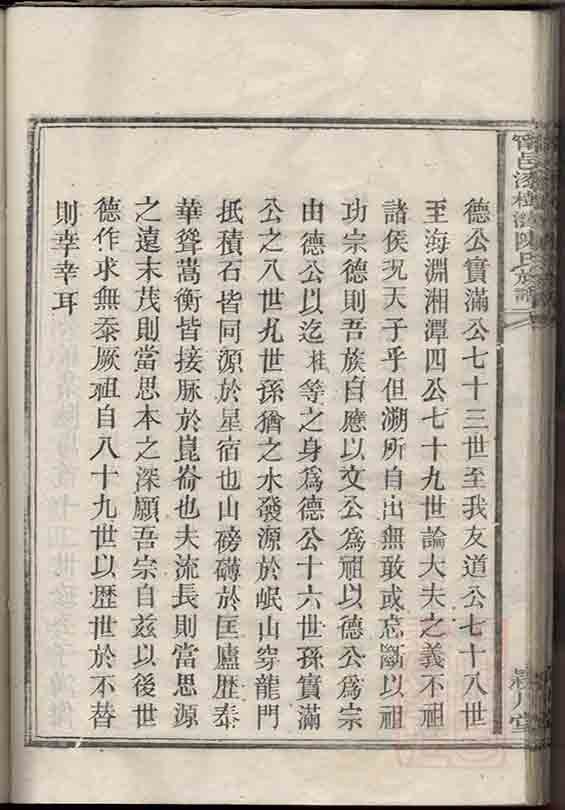 德公實滿公七十三世至我友道公七十八世
至海淵湘潭四公七十九世論大夫之義不祖
諸侯况天子乎但溯所自出無敢或忘斷以祖
功宗德則吾族自應以文公爲祖以德公爲宗
由德公以迄桂等之身爲德公十六世孫實滿
公之八世九世孫猶之水發源於岷山穿龍門
抵積石皆同源於星宿也山磅礴於匡廬歴泰
華聳嵩衡皆接脉於崑崙也夫流長則當思源
之遠末茂則當思本之深願吾宗自兹以後世
德作求無忝厥祖自八十九世以歴世於不替
則幸幸耳